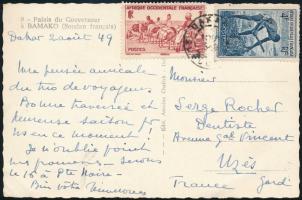 9 - Palais du Gouverneur
à BAMAKO (Soudan français)
Dakar 2 août 49
Une pensée amicale
du trio de voyageurs
Bonne traversée et
heureuse saison for
us en ce moment !
Je n'oublie point
vos promesses - serons
le 16 à Pte Noire -
Bien votre
AFRIQUE OCCIDENTALE FRANÇAISE
POSTES
Monsieur
Serge Rocher
Dentiste
Avenue Gal Vincent
Uzès
France Gard